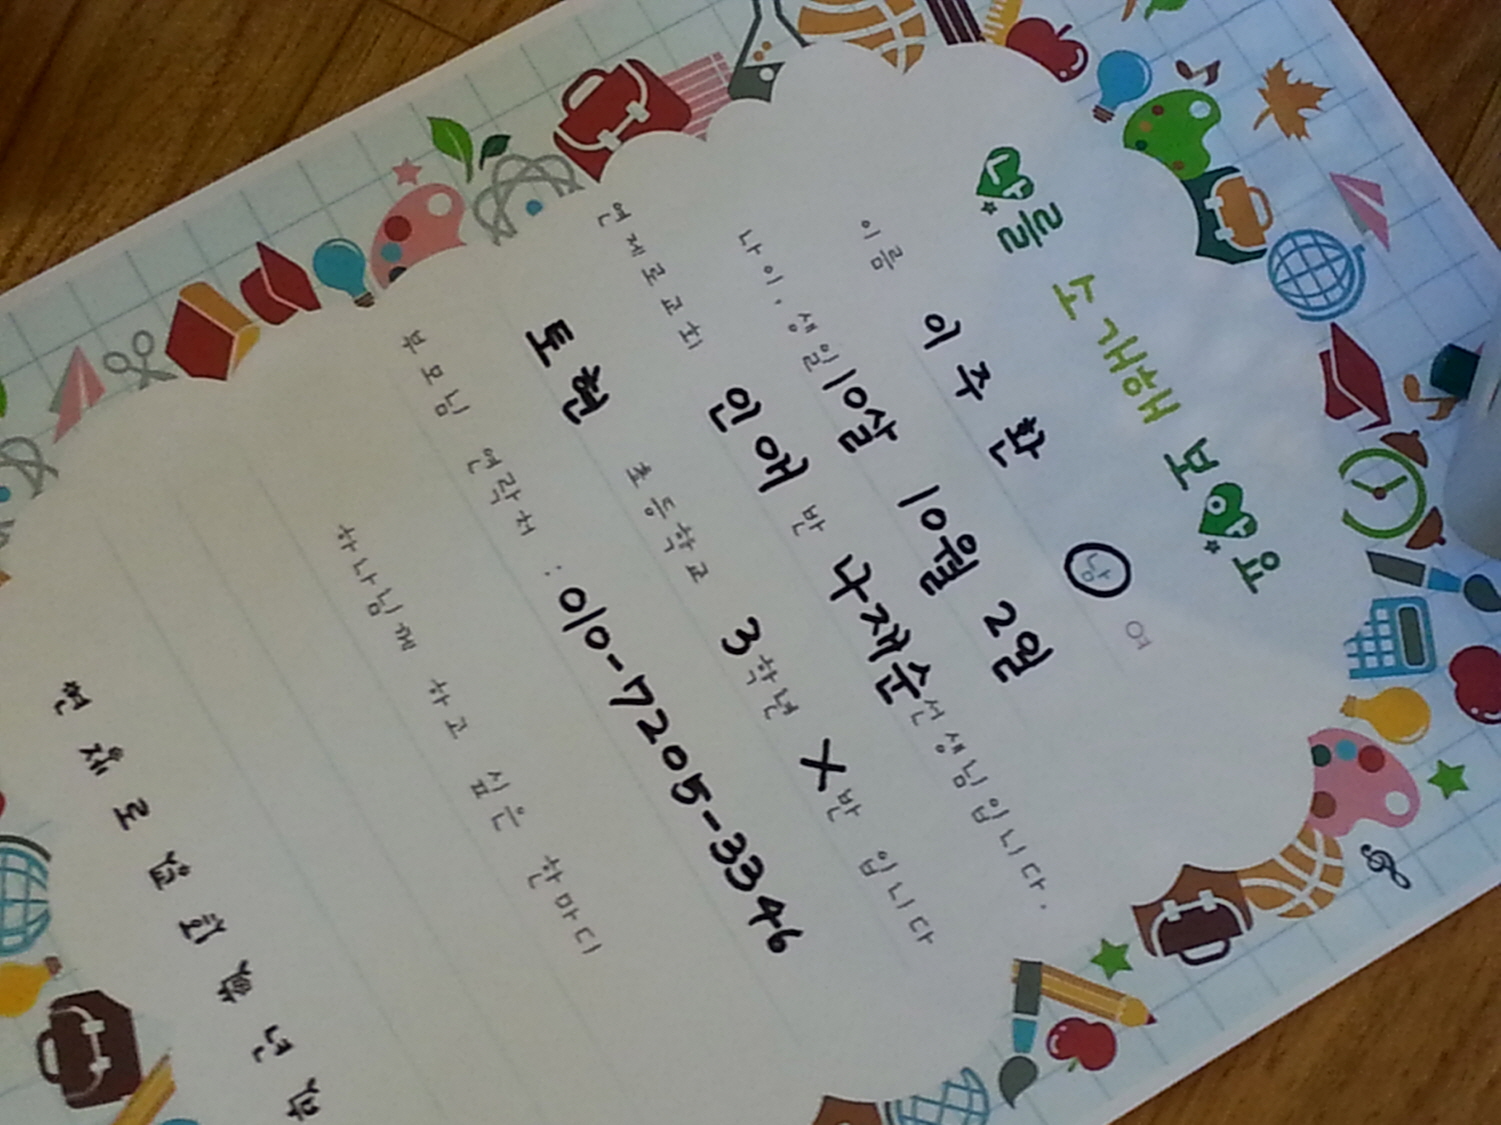 나를 소개해 보아요
이름 이주환 남 여
나이, 생일 10살 10월 2일
연제로교회 인애 반 나재순 선생님입니다.
토현 초등학교 3학년 X반 입니다
부모님 연락처 : 010-7205-3346
하나님께 하고 싶은 한마디
연제로교회학년반